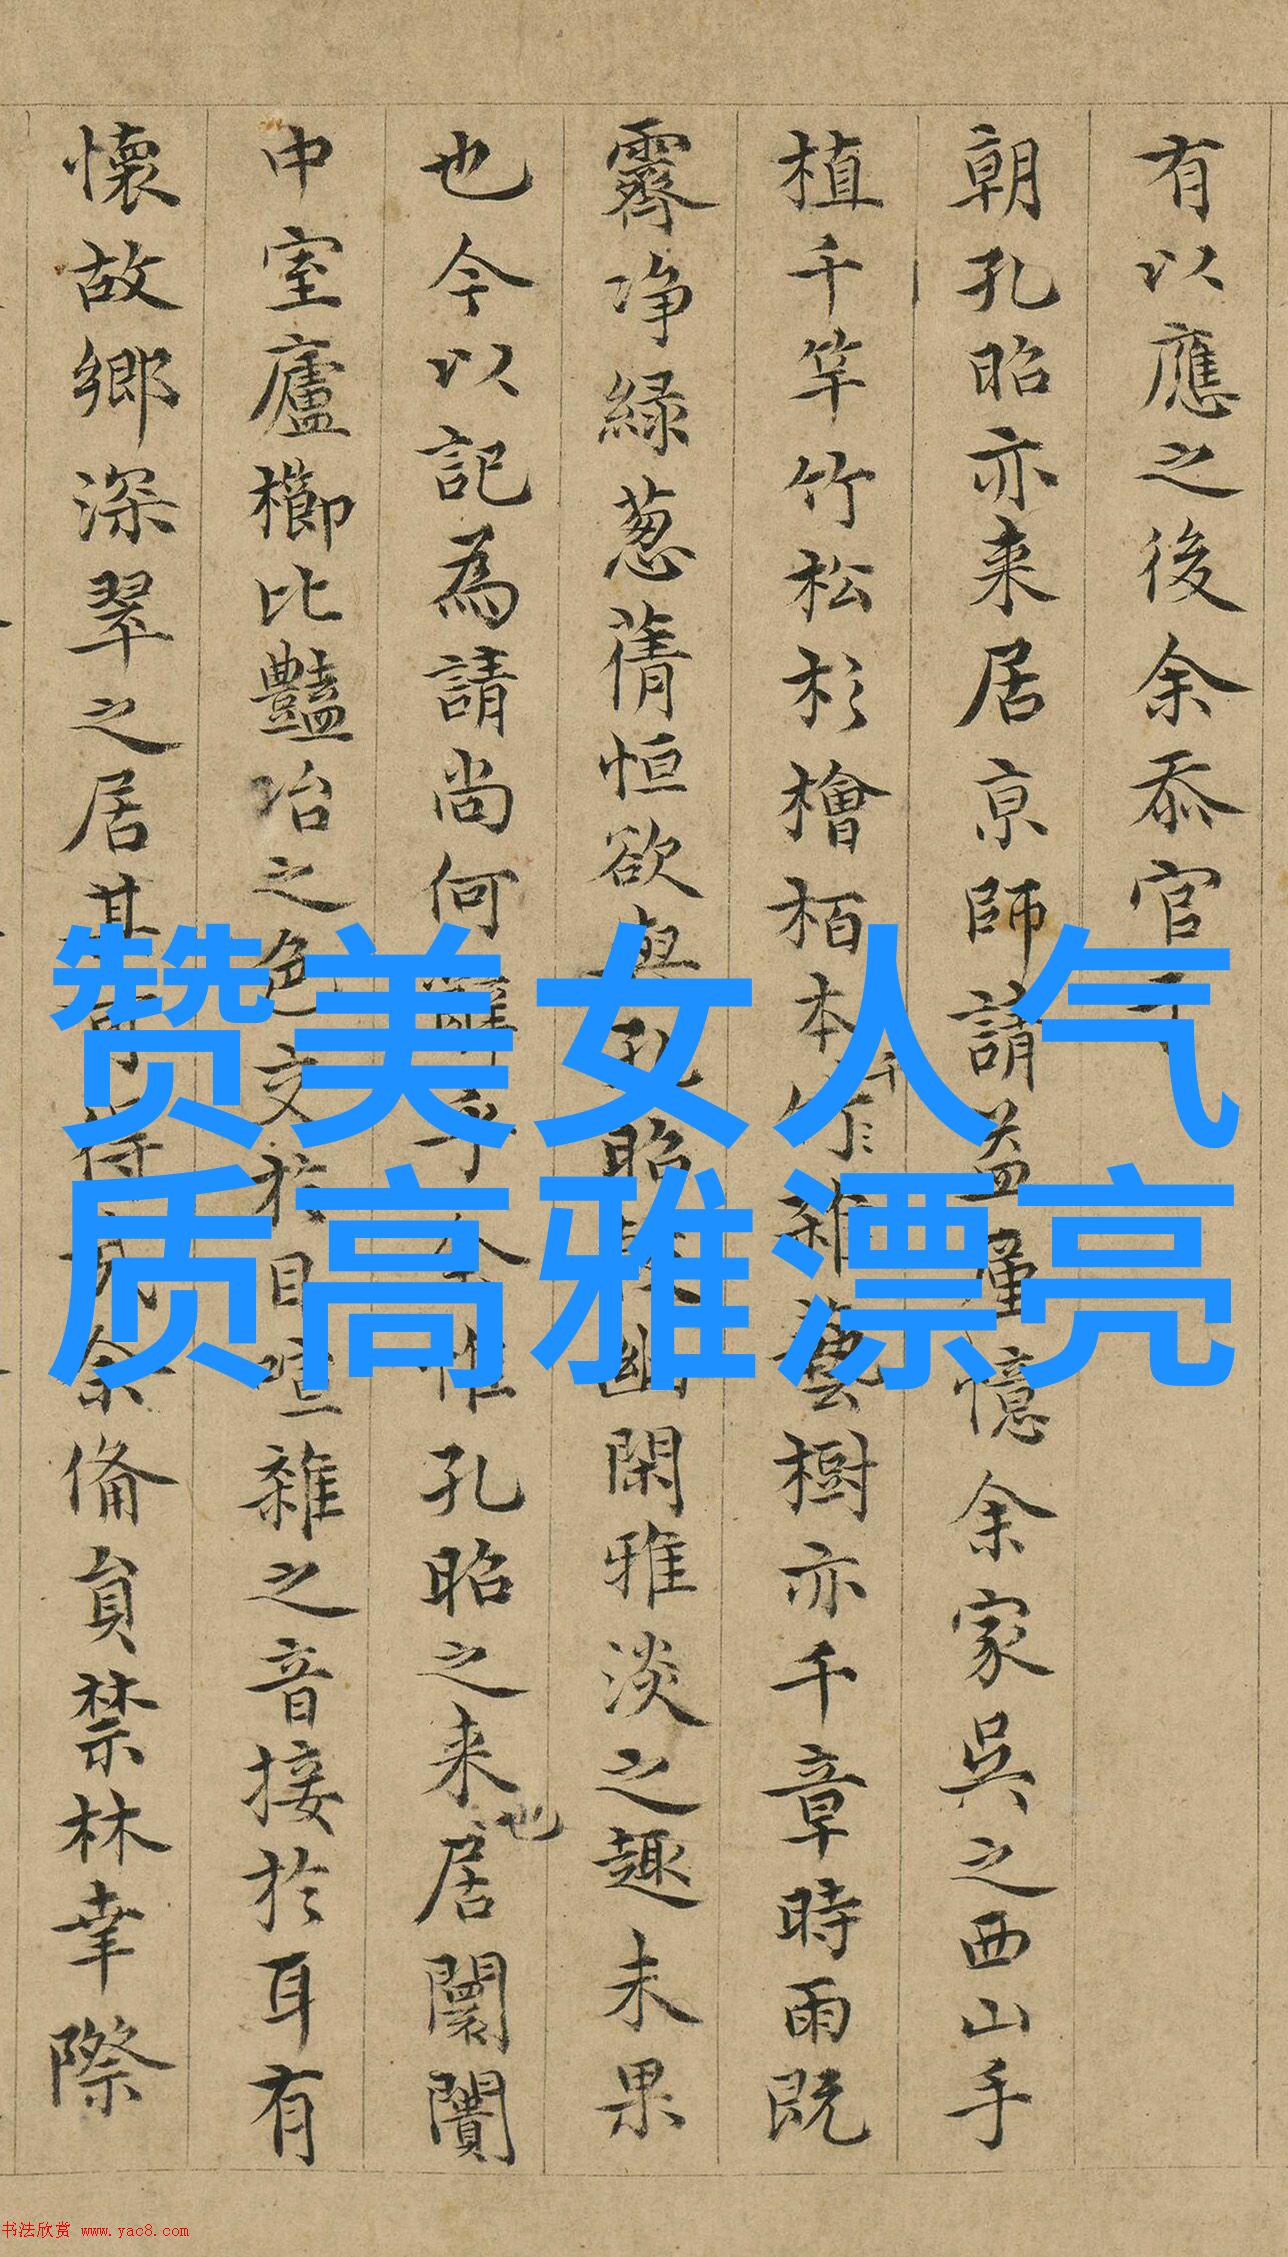 有以應之後余忝官于
朝孔昭亦来居京師請益憶余家吳之西山手
植千竿竹松杉檜栢本竹雜藝樹亦千章時雨既
霽净緑葱蒨恒欲與孔昭幽閑雅淡之趣未果
也今以記為請尚何辭乎余惟孔昭之来居也闤闠
中室廬櫛比豔冶之色交於目喧雜之音接於耳有
懷故鄉深翠之居其可得余備員禁林幸際
赞美女人气
质高雅漂亮
书法欣赏 www.yac8.com